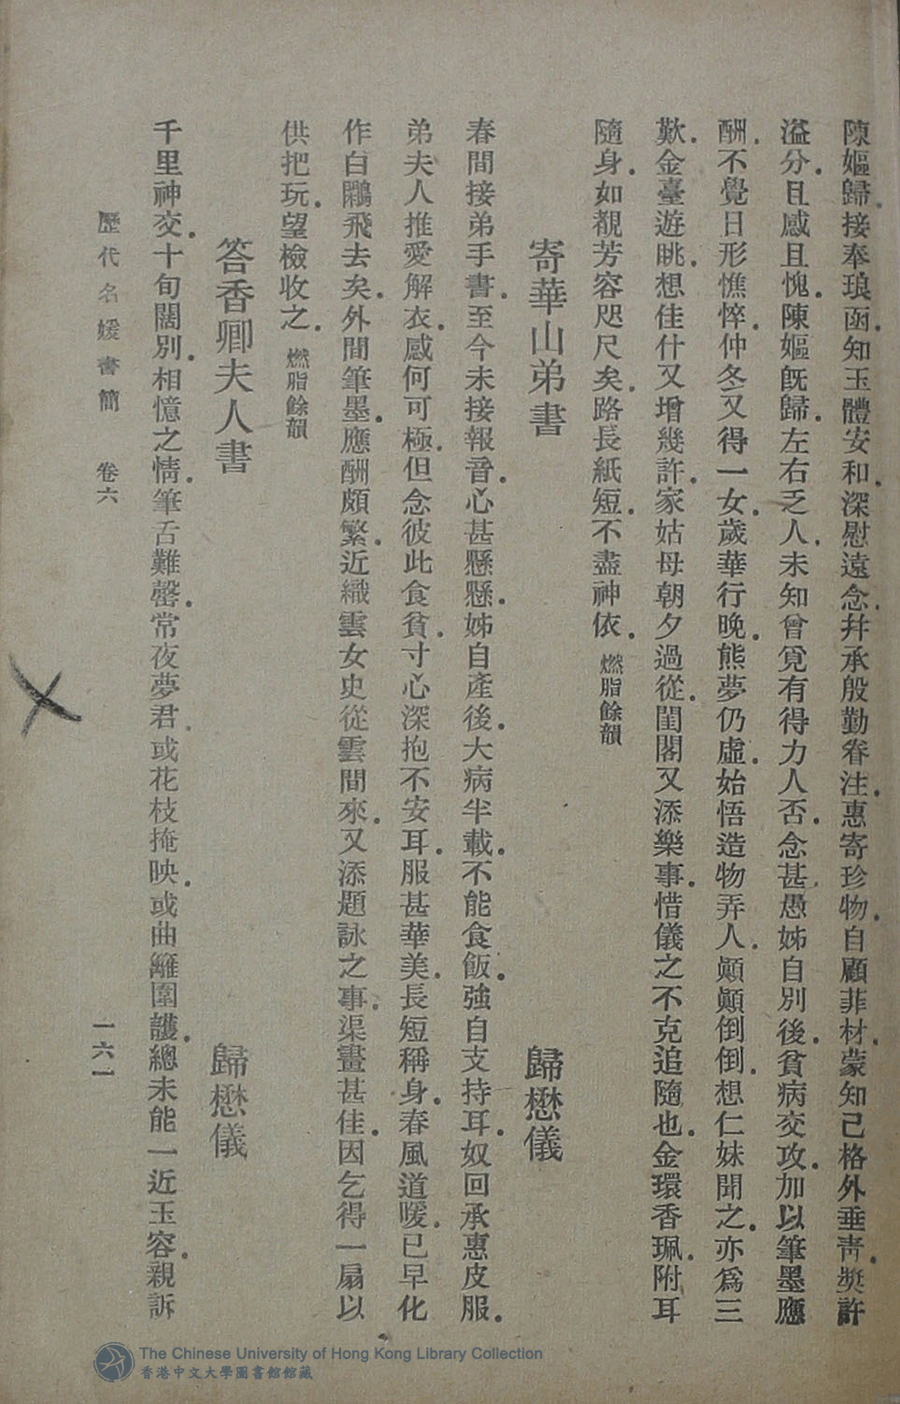 陳嫗歸接奉琅函．知玉體安和．深慰遠念．幷承殷勤眷注．惠寄珍物．自顧菲材．蒙知己格外垂靑．奬許
溢分．且感且愧．陳嫗旣歸．左右乏人．未知曾覓有得力人否．念甚．愚姊自別後．貧病交攻．加以筆墨應
酬．不覺日形憔悴．仲冬又得一女．歲華行晚．熊夢仍虛．始悟造物弄人．顚顚倒倒．想仁妹聞之．亦爲三
歎．金臺遊眺．想佳什又增幾許．家姑母朝夕過從．閨閣又添樂事．惜儀之不克追隨也．金環香珮．附耳
隨身．如覩芳容咫尺矣．路長紙短．不盡神依．燃脂餘韻
寄華山弟書 歸懋儀
春間接弟手書．至今未接報音．心甚懸懸．姊自產後．大病半載．不能食飯．強自支持耳．奴回承惠皮服．
弟夫人推愛解衣．感何可極．但念彼此食貧．寸心深抱不安耳．服甚華美．長短稱身．春風道暖．已早化
作白鷴飛去矣．外間筆墨．應酬頗繁．近織雲女史從雲間來．又添題詠之事．渠畫甚佳．因乞得一扇以
供把玩．望檢收之．燃脂餘韻
答香卿夫人書 歸懋儀
千里神交．十旬闊別．相憶之情．筆舌難罄．常夜夢君．或花枝掩映．或曲籬圍護．總未能一近玉容．親訴
歷代名媛書簡 卷六 一六一
The Chinese University of Hong Kong Library Collection
香港中文大學圖書館館藏